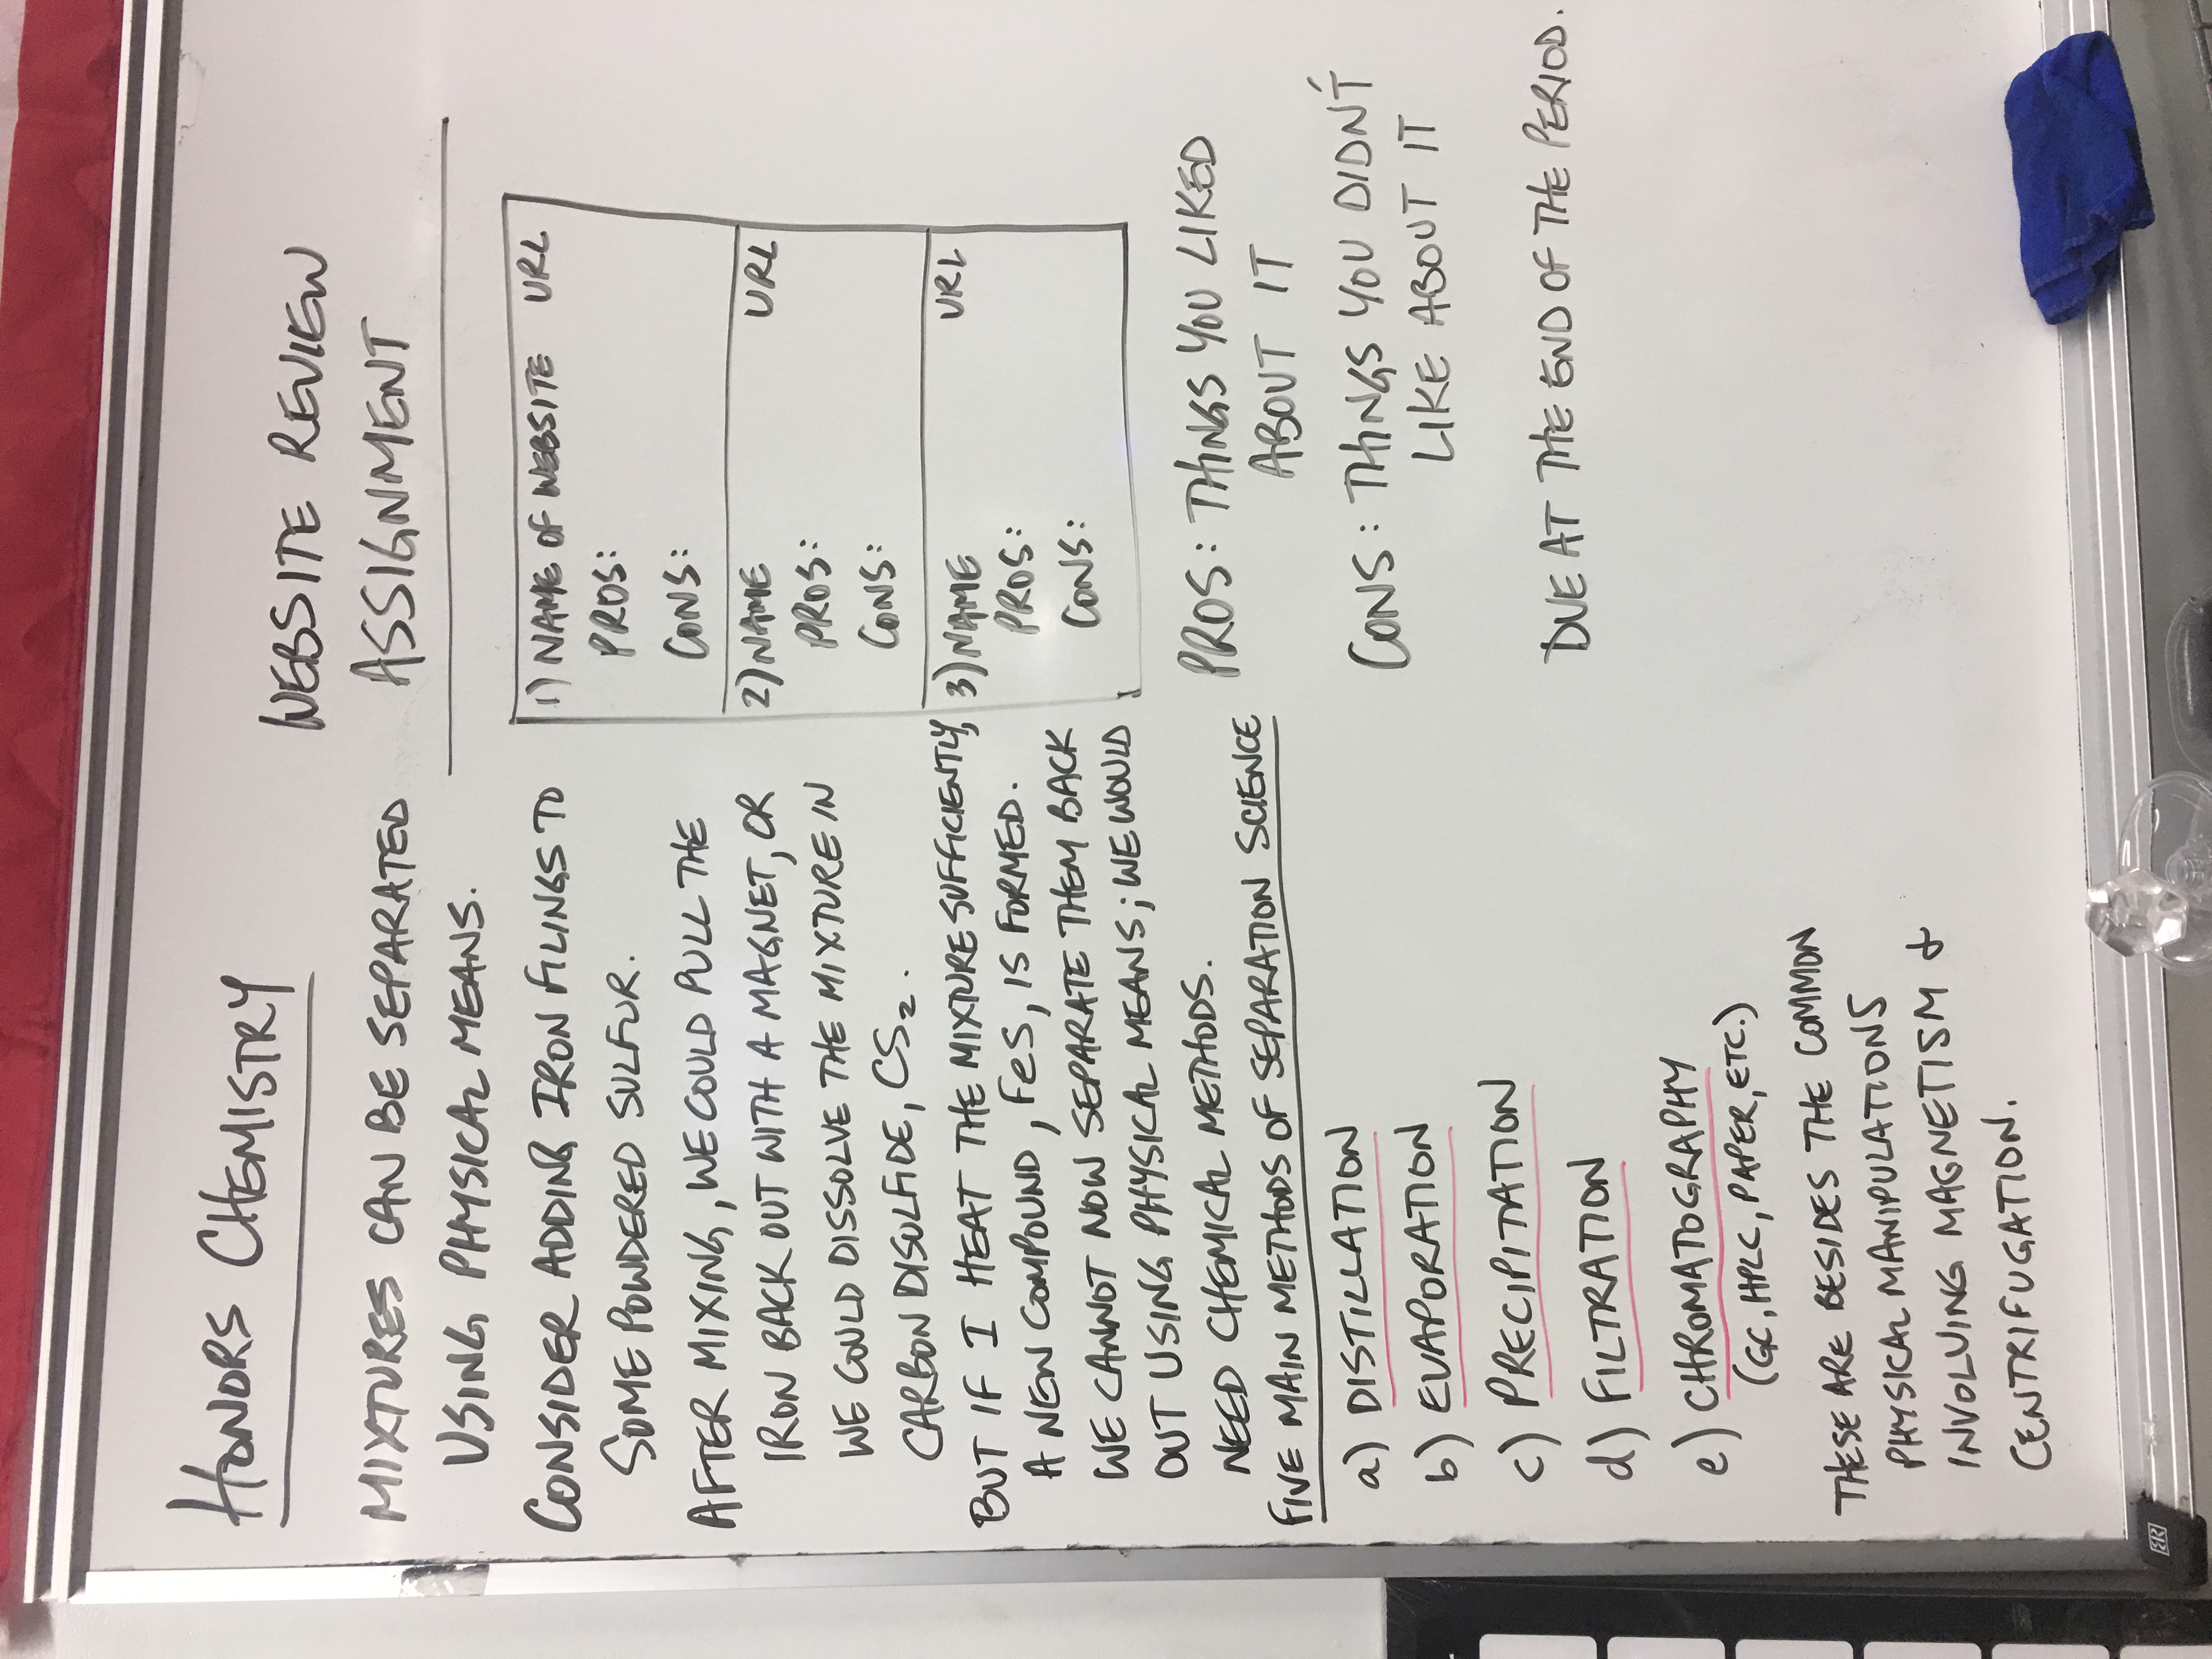 HONORS CHEMISTRY
MIXTURES CAN BE SEPARATED
USING PHYSICAL MEANS.
CONSIDER ADDING IRON FILINGS TO
SOME POWDERED SULFUR.
AFTER MIXING, WE COULD PULL THE
IRON BACK OUT WITH A MAGNET, OR
WE COULD DISSOLVE THE MIXTURE IN
CARBON DISULFIDE, CS₂.
BUT IF I HEAT THE MIXTURE SUFFICIENTLY,
A NEW COMPOUND, FeS, IS FORMED.
WE CANNOT NOW SEPARATE THEM BACK
OUT USING PHYSICAL MEANS; WE WOULD
NEED CHEMICAL METHODS.
FIVE MAIN METHODS OF SEPARATION SCIENCE
a) DISTILLATION
b) EVAPORATION
c) PRECIPITATION
d) FILTRATION
e) CHROMATOGRAPHY
(GC, HPLC, PAPER, ETC.)
THESE ARE BESIDES THE COMMON
PHYSICAL MANIPULATIONS
INVOLVING MAGNETISM &
CENTRIFUGATION.
WEBSITE REVIEW
ASSIGNMENT
1) NAME OF WEBSITE URL
PROS:
CONS:
2) NAME URL
PROS:
CONS:
3) NAME URL
PROS:
CONS:
PROS: THINGS YOU LIKED
ABOUT IT
CONS: THINGS YOU DIDN'T
LIKE ABOUT IT
DUE AT THE END OF THE PERIOD.